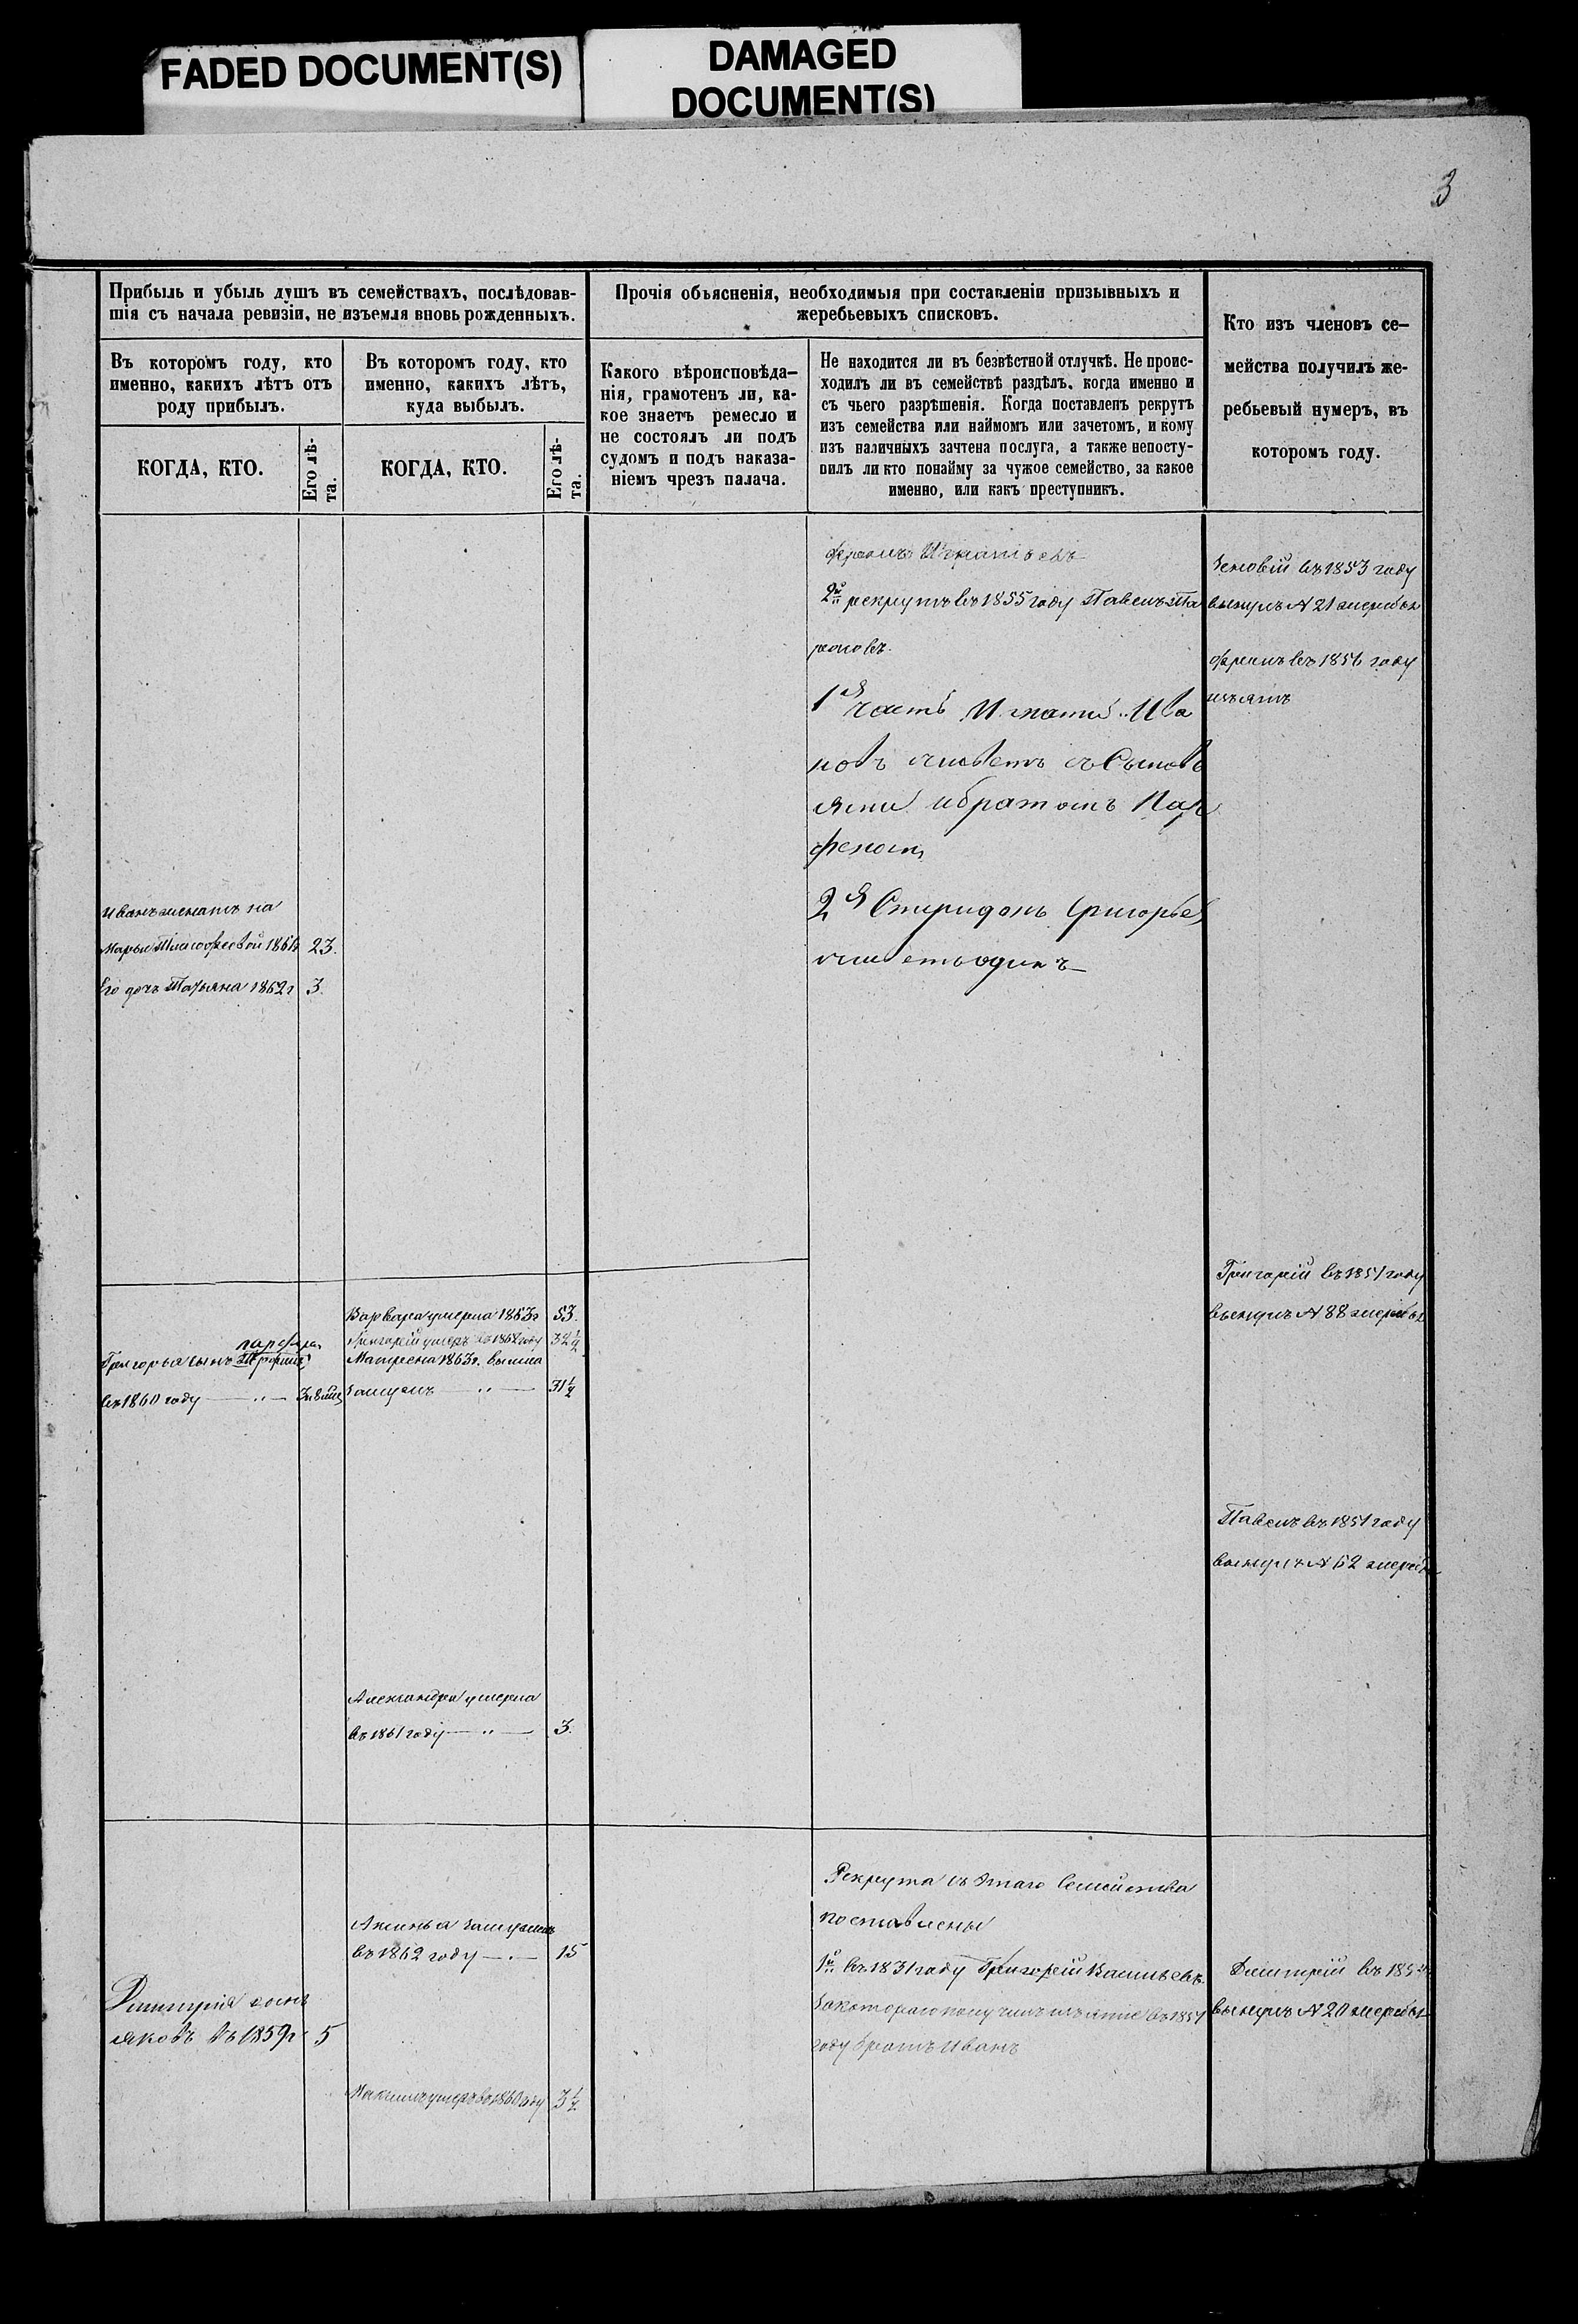 FADED DOCUMENT(S)
DAMAGED
DOCUMENT(S)
3
Прибыль и убыль душъ въ семействахъ, послѣдовав-
шія съ начала ревизіи, не изъемля вновь рожденныхъ.
Въ которомъ году, кто
именно, какихъ лѣтъ отъ
роду прибылъ.
КОГДА, КТО.
Его лѣ-
та.
Въ которомъ году, кто
именно, какихъ лѣтъ,
куда выбылъ.
КОГДА, КТО.
Его лѣ-
та.
Прочія объясненія, необходимыя при составленіи призывныхъ и
жеребьевыхъ списковъ.
Какого вѣроисповѣда-
нія, грамотенъ ли, ка-
кое знаетъ ремесло и
не состоялъ ли подъ
судомъ и подъ наказа-
ніемъ чрезъ палача.
Не находится ли въ безвѣстной отлучкѣ. Не проис-
ходилъ ли въ семействѣ раздѣлъ, когда именно и
съ чьего разрѣшенія. Когда поставленъ рекрутъ
изъ семейства или наймомъ или зачетомъ, и кому
изъ наличныхъ зачтена послуга, а также непосту-
пилъ ли кто понайму за чужое семейство, за какое
именно, или какъ преступникъ.
Кто изъ членовъ се-
мейства получилъ же-
ребьевый нумеръ, въ
которомъ году.
Игнатьевъ
2й рекрутъ въ 1855 году Павелъ Па
1я часть Игнатій Ива
новъ живетъ съ Сыновь
ями и братомъ Пар
феномъ
2я Спиридонъ Григорьев
живетъ одинъ
Зеновій въ 1853 году
вынулъ № 21 жеребья
въ 1856 году
изъятъ
Иванъ женатъ на
Марьи Тимофеевой 23.
Его дочь Татьяна 1862г 3.
Григорій въ 1851 году
вынулъ № 88 жеребья
Варвара умерла 1863г 53.
Григорій умеръ въ 1862 году 32½
Матрена 1863г. вышла
замужъ — " — 31½
Григорья сынъ
въ 1860 году — " —
Павелъ въ 1851 году
вынулъ № 62 жеребья
Александра умерла
въ 1861 году — " — 3.
Рекрута съ этаго Семейства
поставлены
1й въ 1831 году Григорій Васильевъ.
за котораго получилъ изъятіе въ 1851
году братъ Иванъ
Аксинья замужъ
въ 1862 году — . — 15
Дмитрій
вынулъ № 20 жеребья
Дмитрія сынъ
Яковъ въ 1859г 5
Максимъ умеръ въ 1860 году 3½